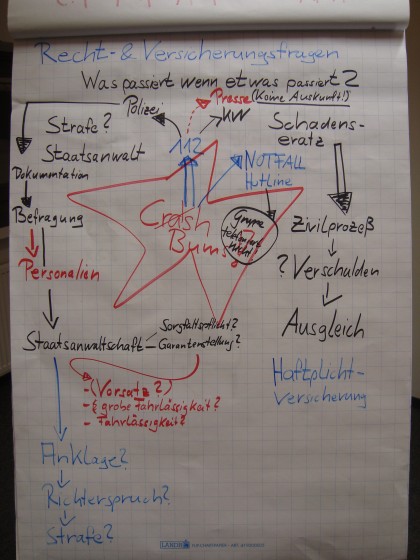 Recht- & Versicherungsfragen
Was passiert wenn etwas passiert?
Polizei
Presse
(Keine Auskunft!)
KW
Strafe?
Staatsanwalt
Dokumentation
112
NOTFALL
Hotline
Schadens-
ersatz
Befragung
Personalien
Crash
Bums!
Gruppe
telefoniert
nicht!
Zivilprozeß
? Verschulden
Ausgleich
Haftplicht-
versicherung
Staatsanwaltschaft
Sorgfaltspflicht?
Garantenstellung?
- (Vorsatz?)
- grobe Fahrlässigkeit?
- Fahrlässigkeit?
Anklage?
Richterspruch?
Strafe?